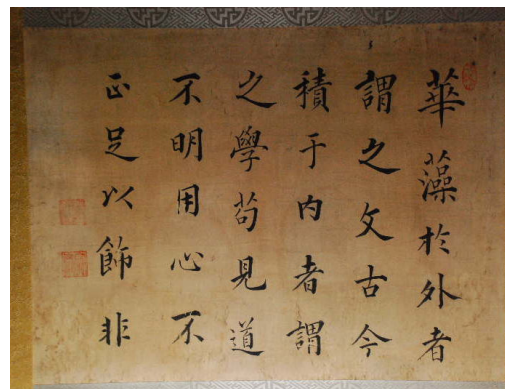 華藻於外者
謂之文古今
積于内者謂
之學茍見道
不明用心不
正足以飾非